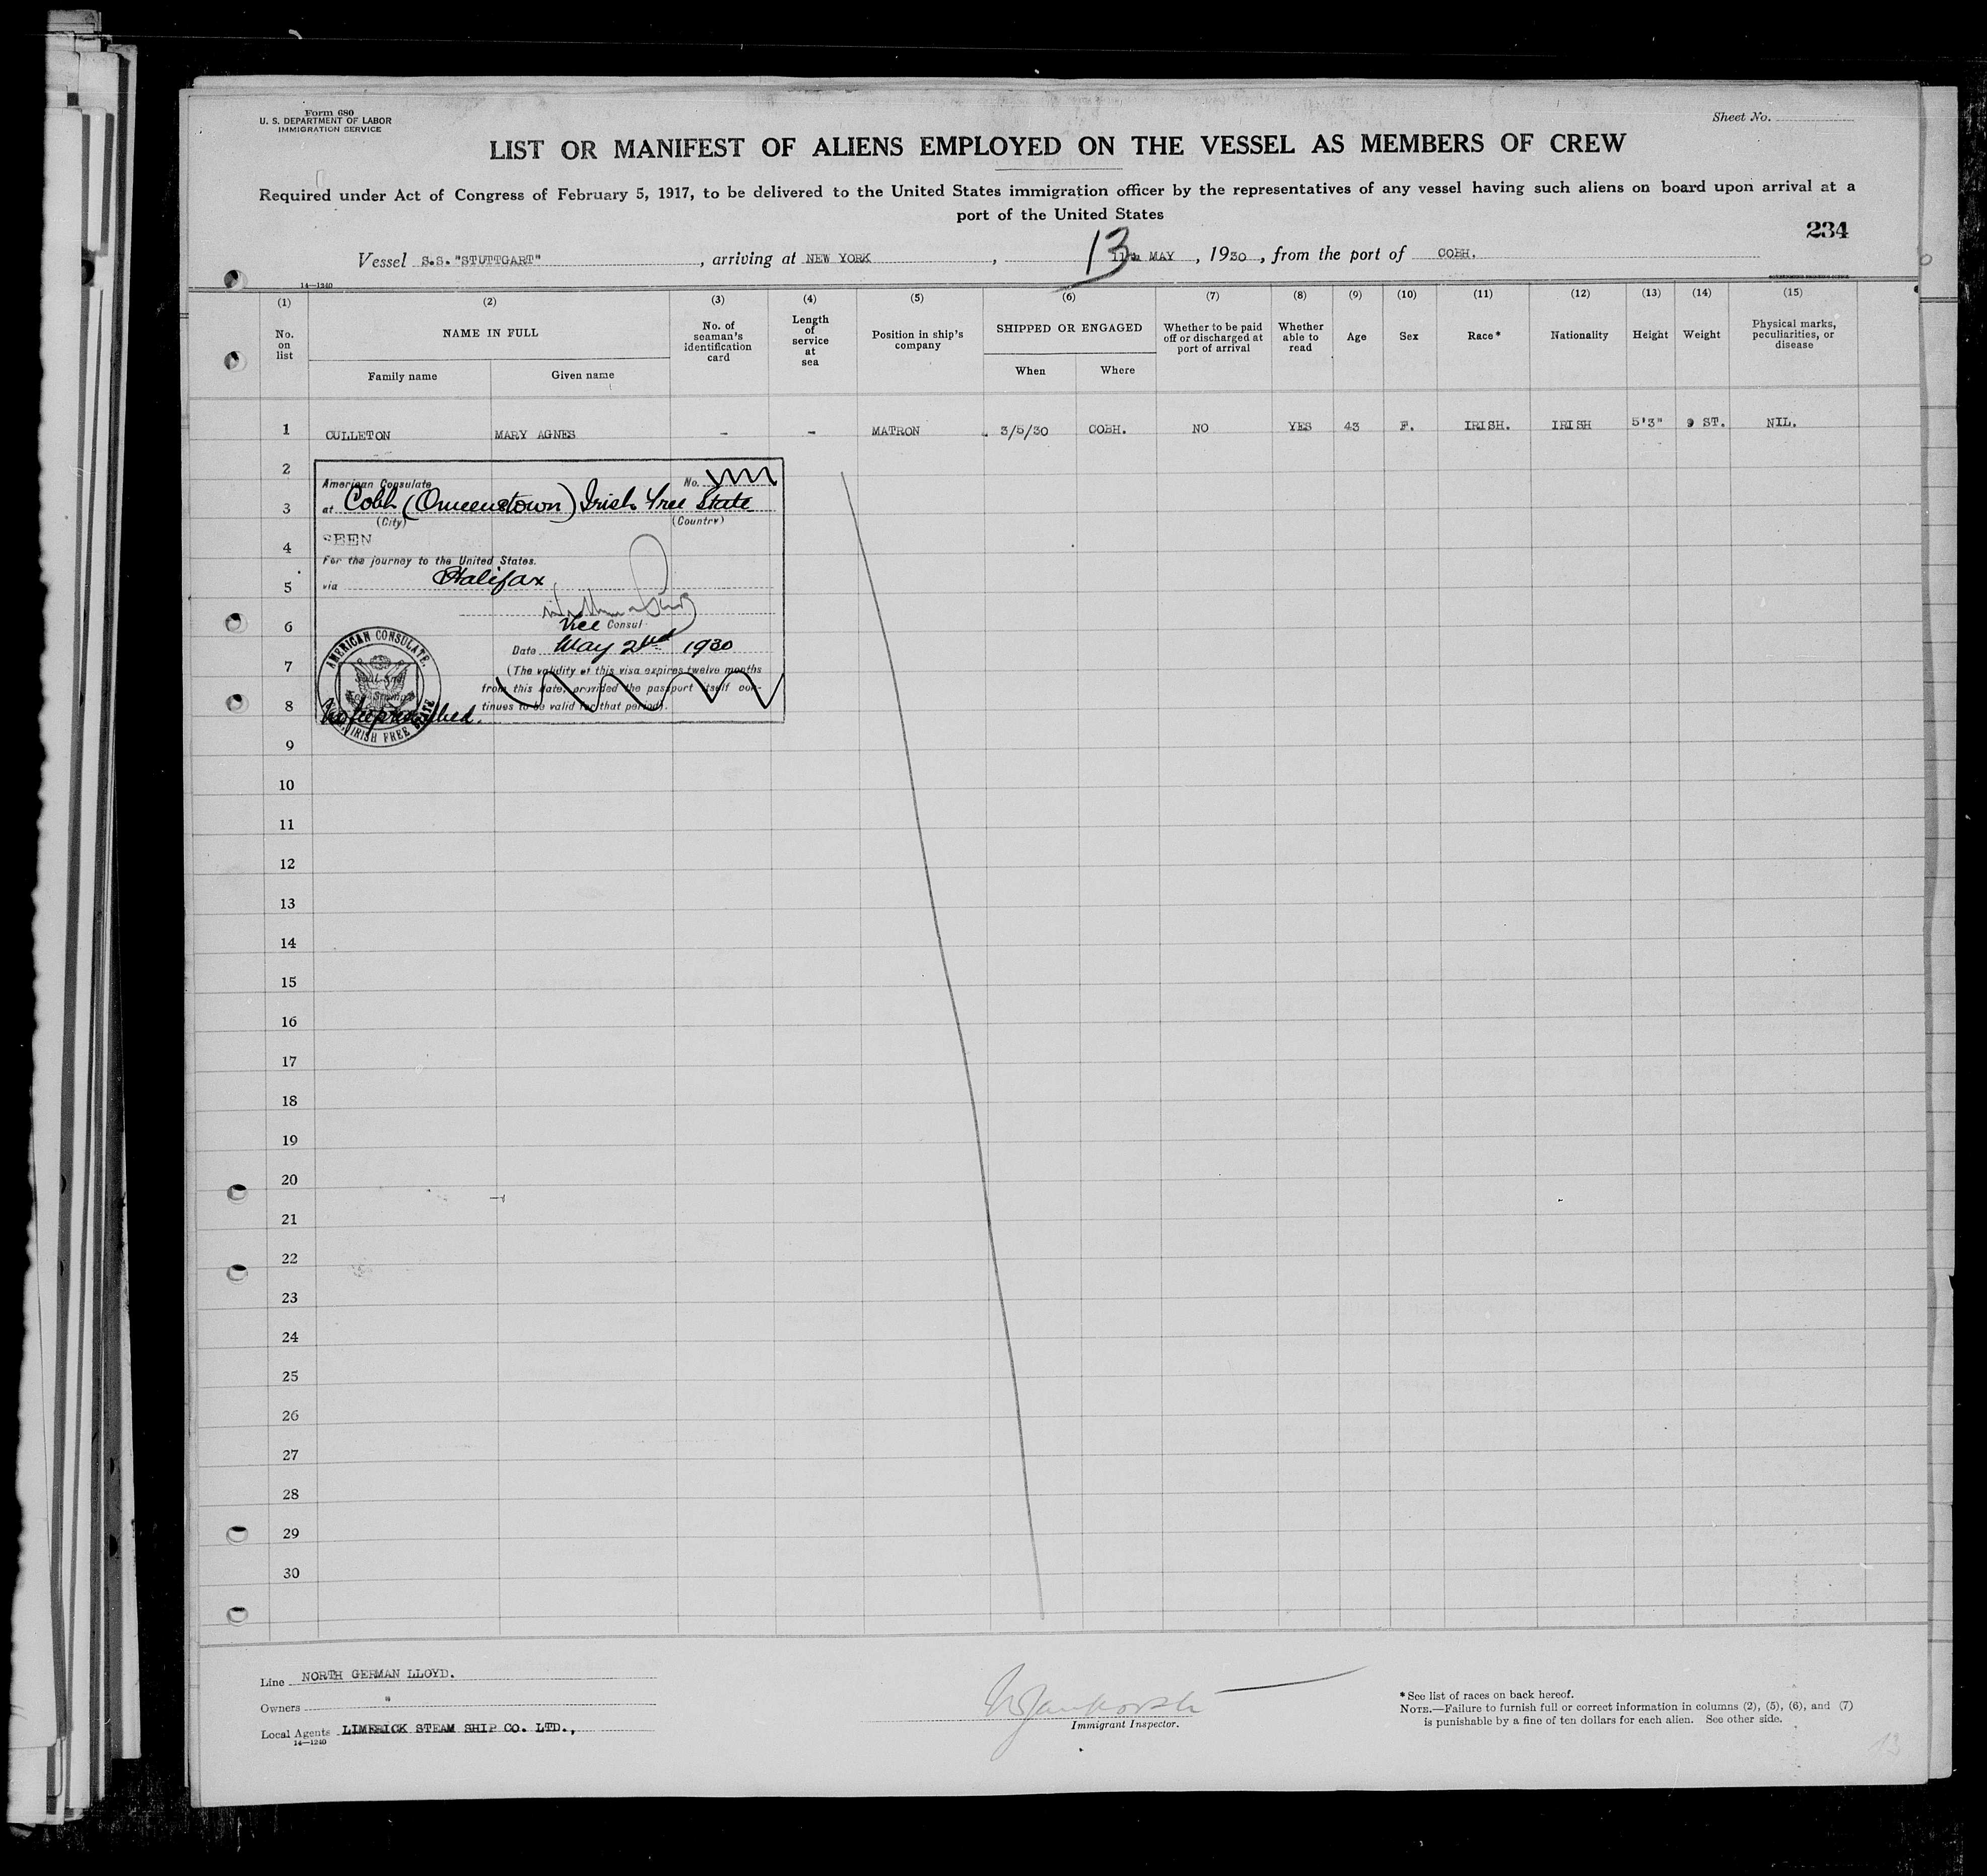 Form 680
U. S. DEPARTMENT OF LABOR
IMMIGRATION SERVICE
Sheet No.
LIST OR MANIFEST OF ALIENS EMPLOYED ON THE VESSEL AS MEMBERS OF CREW
Required under Act of Congress of February 5, 1917, to be delivered to the United States immigration officer by the representatives of any vessel having such aliens on board upon arrival at a
port of the United States
234
Vessel S.S. "STUTTGART", arriving at NEW YORK, 13 11th MAY, 1930, from the port of COBH.
14—1240
(1) (2) (3) (4) (5) (6) (7) (8) (9) (10) (11) (12) (13) (14) (15)
No. on list
NAME IN FULL
Family name
Given name
No. of seaman's identification card
Length of service at sea
Position in ship's company
SHIPPED OR ENGAGED
When
Where
Whether to be paid off or discharged at port of arrival
Whether able to read
Age
Sex
Race*
Nationality
Height
Weight
Physical marks, peculiarities, or disease
1 CULLETON MARY AGNES - - MATRON 3/5/30 COBH. NO YES 43 F. IRISH. IRISH 5'3" 9 ST. NIL.
2
American Consulate No.
3
at Cobh (Queenstown) Irish Free State
(City) (Country)
4
SEEN
For the journey to the United States.
5
via Halifax
6
Vice Consul
Date May 2nd 1930
7
(The validity of this visa expires twelve months
from this date, provided the passport itself con-
8
tinues to be valid for that period).
AMERICAN CONSULATE,
IRISH FREE STATE
9
10
11
12
13
14
15
16
17
18
19
20
21
22
23
24
25
26
27
28
29
30
Line NORTH GERMAN LLOYD.
Owners "
Local Agents LIMERICK STEAM SHIP CO. LTD.,
14—1240
Immigrant Inspector.
* See list of races on back hereof.
NOTE.—Failure to furnish full or correct information in columns (2), (5), (6), and (7)
is punishable by a fine of ten dollars for each alien. See other side.
13